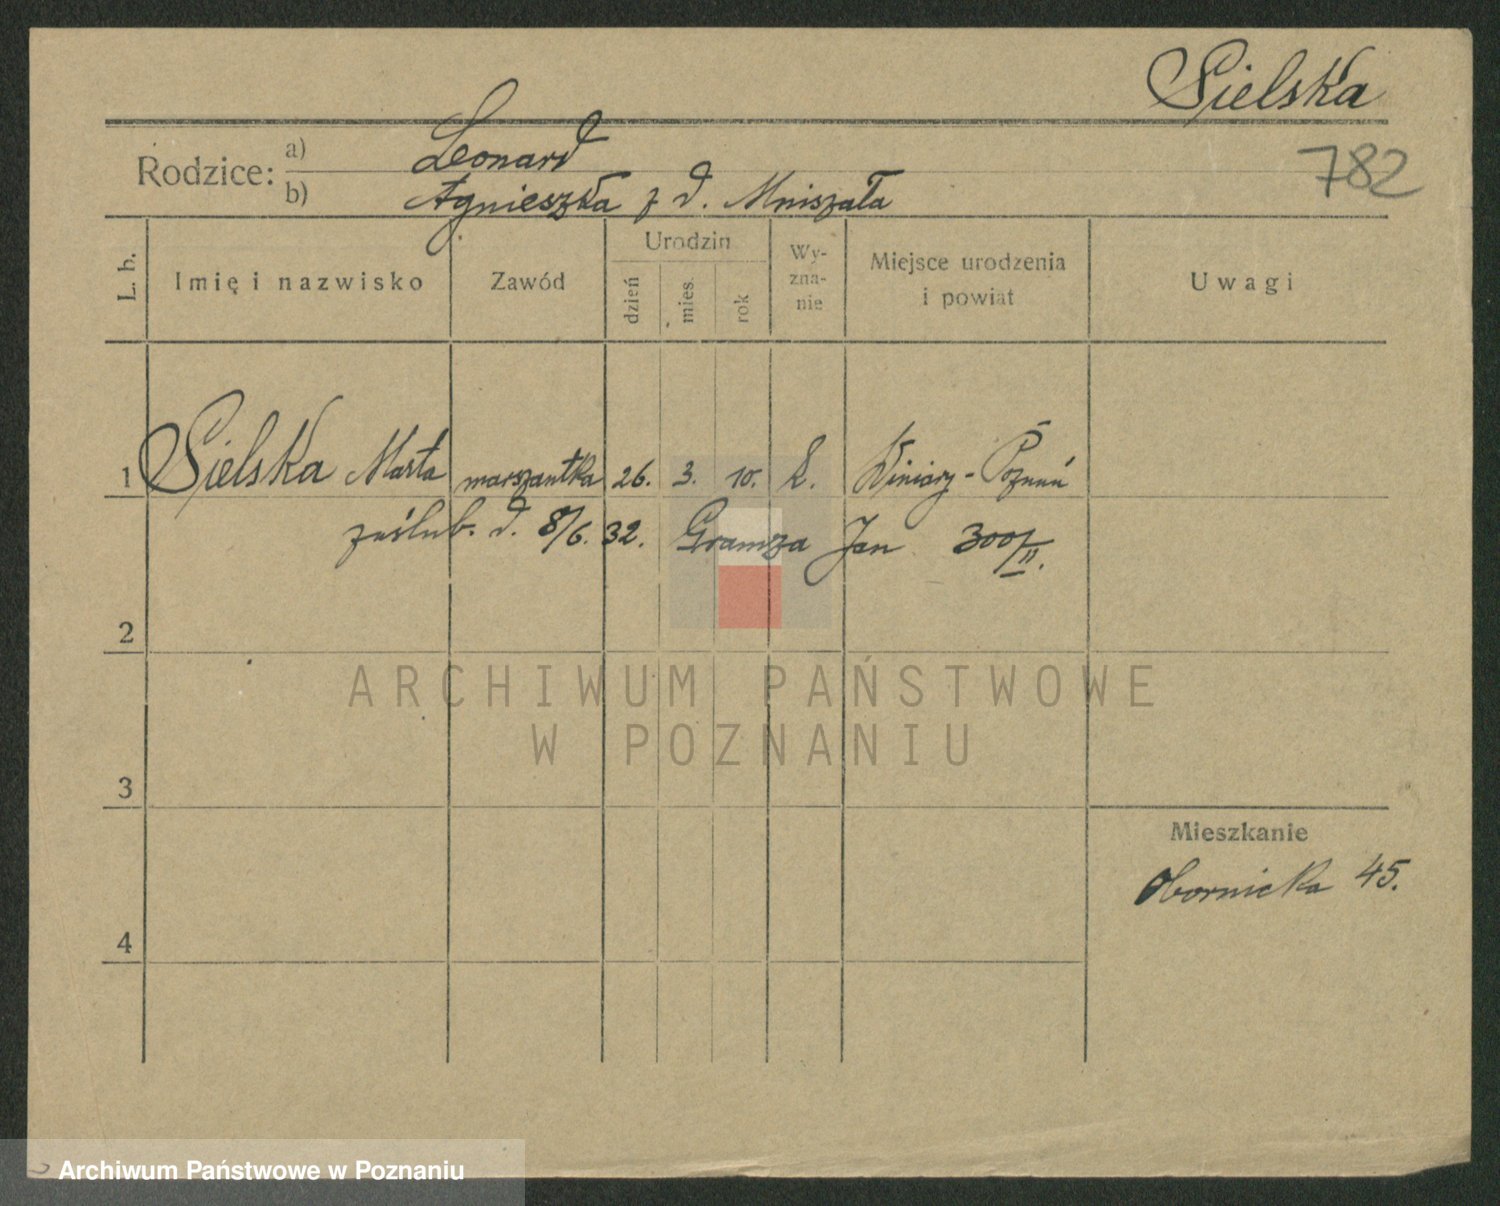 Sielska
782
Rodzice: a) Leonard
b) Agnieszka z d. Mniszała
L. b.
Imię i nazwisko
Zawód
Urodzin
dzień
mies.
rok
Wy-
zna-
nie
Miejsce urodzenia
i powiat
Uwagi
1 Sielska Marta marszantka 26. 3. 10. k. Winiary - Poznań
zaślub. d. 8/6. 32. Gramza Jan 300/II.
2
3
4
Mieszkanie
Obornicka 45.
ARCHIWUM PAŃSTWOWE
W POZNANIU
Archiwum Państwowe w Poznaniu